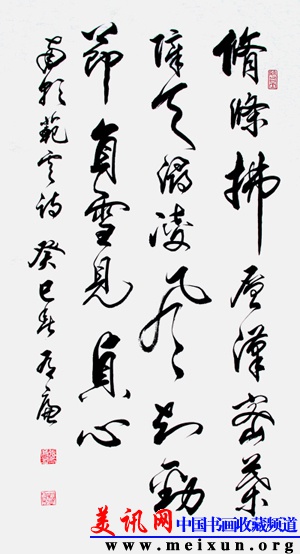 脩條拂层漢密葉
障天潯凌風知勁
節負雪見真心
南朝範雲诗 癸巳春
美讯网 中国书画收藏频道
www.meixun.org